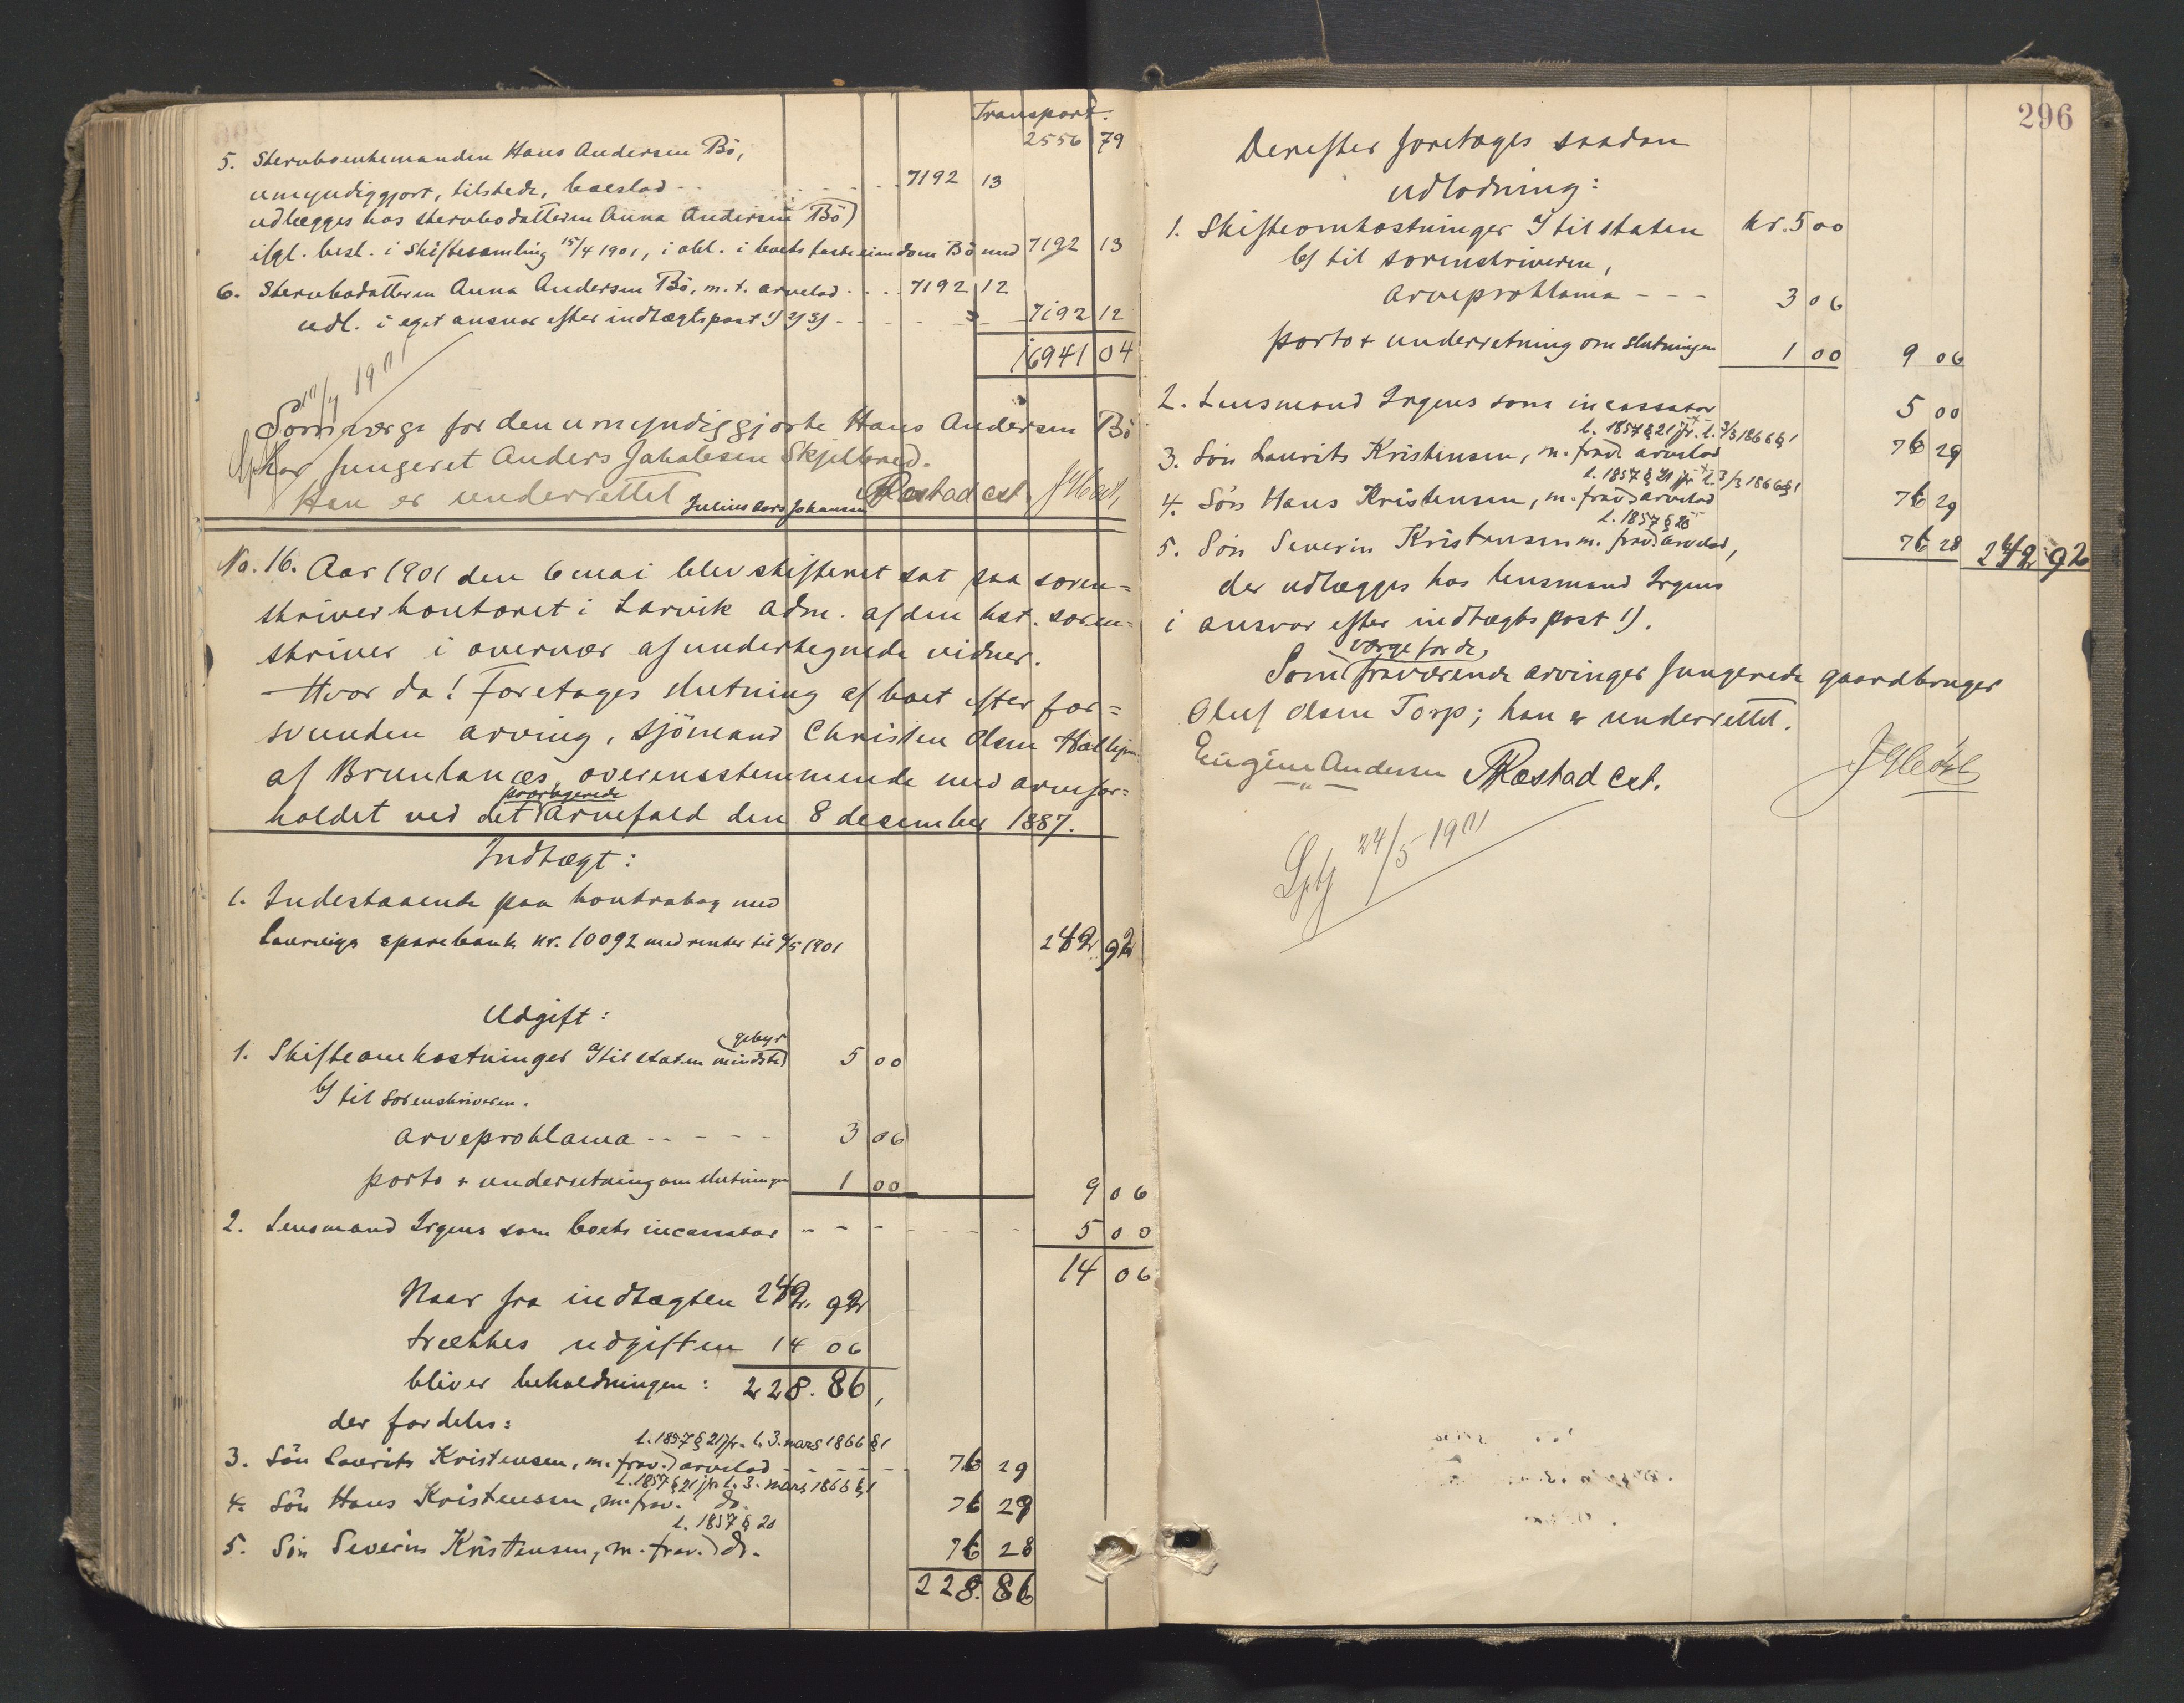 Transport.
2556 79
5. Stervboenkemanden Hans Andersen Bö,
umyndiggjort, tilstede, boeslod - - - - - 7192 13
udlægges hos stervbodatteren Anna Andersen Bö)
ifgl. besl. i Skiftesamling 15/4 1901, i obl. i boets faste eiendom Bö med 7192 13
6. Stervbodatteren Anna Andersen Bö, m. t. arvelod - - - 7192 12
udl. i eget ansvar efter indtægtspost 1) 2) 3) - - - - 7192 12
16941 04
1901
Som verge for den umyndiggjorte Hans Andersen Bö
har fungeret Anders Jakobsen Skjelbred.
Han er underrettet Julius Aars Johansen Røstad cst.
No. 16. Aar 1901 den 6 mai blev skifteret sat paa soren=
skriverkontoret i Larvik adm. af den kst. soren=
skriver i overvær af undertegnede vidner.
Hvor da! Foretages slutning af boet efter for=
svunden arving, sjömand Christen Olsen
af Brunlanæs, overensstemmende med arvefor=
præsumerede
holdet ved det arvefald den 8 desember 1887.
Indtægt:
1. Indestaaende paa kontrabog med
Laurvigs sparebank nr. 10092 med renter til 6/5 1901 242 92
Udgift:
gebyr
1. Skifteomkostninger a/ til staten mindste 5 00
b/ til sorenskriveren.
arveproklama - - - - - 3 06
porto + underretning om slutningen 1 00 9 06
2. Lensmand Irgens som boets incassator - - - - - - 5 00
14 06
Naar fra indtægten 242. 92
trækkes udgiften 14 06
bliver beholdningen: 228. 86,
der fordeles:
l. 1857 § 21 jfr. l. 3. mars 1866 § 1
3. Sön Laurits Kristensen, m. frav. arvelod - - - - - 76 29
l. 1857 § 21 jfr l. 3. mars 1866 § 1
4. Sön Hans Kristensen, m. frav. do. 76 29
l. 1857 § 20
5. Sön Severin Kristensen, m. frav. do. 76 28
228. 86
296
Derefter foretages saadan
udlodning:
1. Skifteomkostninger a/ til staten kr. 5 00
b/ til sorenskriveren,
arveproklama - - - 3 06
porto + underretning om slutningen 1 00 9 06
2. Lensmand Irgens som incassator 5 00
l. 1857 § 21 jfr. l. 3/3 1866 § 1
3. Sön Laurits Kristensen, m. frav. arvelod 76 29
l. 1857 § 21 jfr l. 3/3 1866 § 1
4. Sön Hans Kristensen, m. frav. arvelod 76 29
l. 1857 § 20
5. Sön Severin Kristensen m. frav. arvelod, 76 28 242 92
der udlægges hos lensmand Irgens
i ansvar efter indtægtspost 1).
verge for de
Som fraværende arvinger fungerede gaardbruger
Oluf Olsen Torp; han er underrettet.
Eugéne Andersen Røstad cst.
24/5 1901